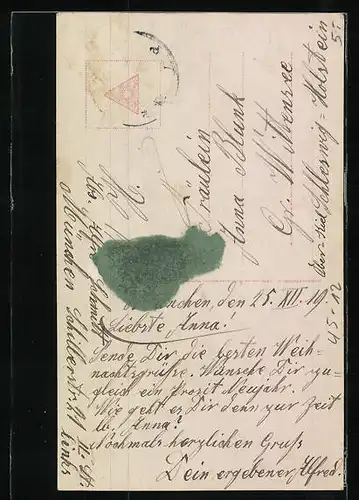 Fräulein
Anna Blunk
Gr. Wittensee
Schleswig=Holstein
München, den 25. XII. 19
Liebste Anna!
Sende Dir die besten Weih-
nachtsgrüße. Wünsche Dir zu-
gleich ein Prosit Neujahr.
Wie geht es Dir denn zur Zeit
lb. Anna?
Nochmals herzlichen Gruß
Dein ergebener Alfred.
München
links
45-12
5.-